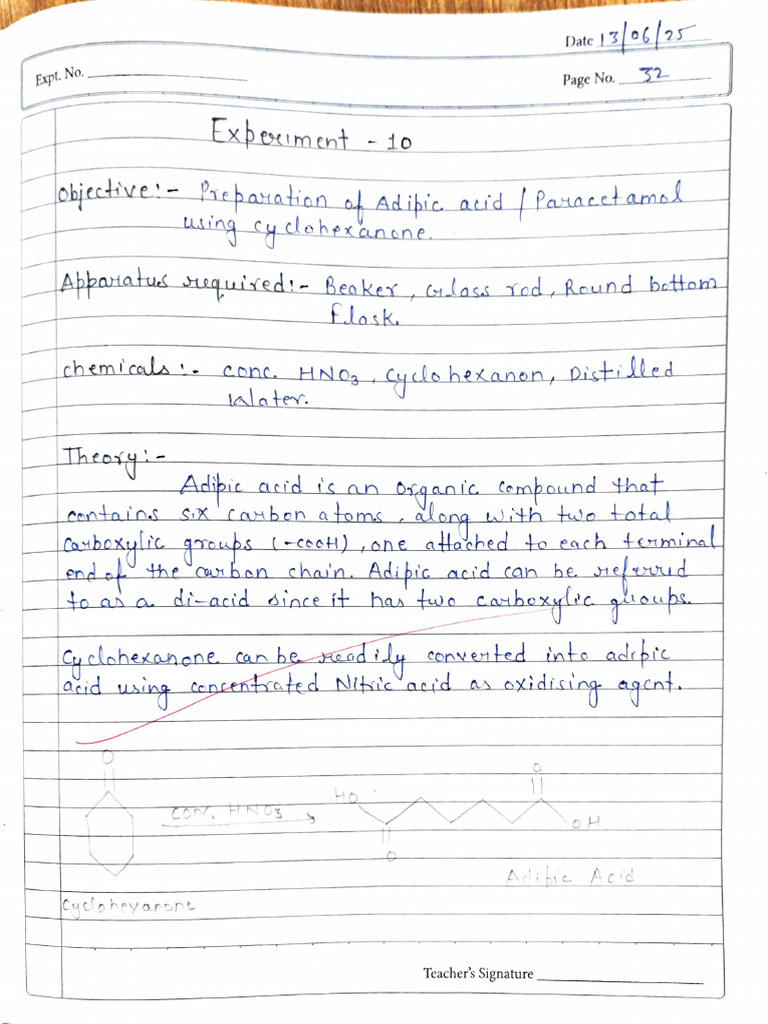 Date 13/06/25
Expt. No.
Page No. 32
Experiment - 10
Objective:- Preparation of Adipic acid / Paracetamol
using cyclohexanone.
Apparatus required:- Beaker, Glass rod, Round bottom
Flask.
Chemicals:- Conc. HNO3, Cyclohexanon, Distilled
Water.
Theory:-
Adipic acid is an organic compound that
contains six carbon atoms, along with two total
carboxylic groups (-COOH), one attached to each terminal
end of the carbon chain. Adipic acid can be referred
to as a di-acid since it has two carboxylic groups.
Cyclohexanone can be readily converted into adipic
acid using concentrated Nitric acid as oxidising agent.
O
O
HO
Conc. HNO3
OH
O
Adipic Acid
Cyclohexanone
Teacher's Signature